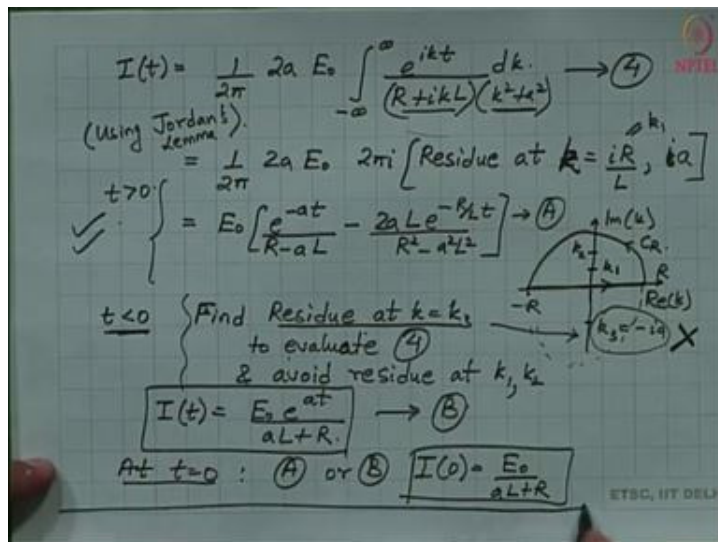 I(t) = 1/2π 2a E₀ ∫_{-∞}^{∞} e^{ikt}/((R+ikL)(k²+a²)) dk. → ④
NPTEL
(Using Jordan's Lemma).
= 1/2π 2a E₀ 2πi [Residue at k = iR/L, ia]
k₁
t>0 { = E₀ [e^{-at}/(R-aL) - 2aL e^{-R/L t}/(R²-a²L²)] → Ⓐ
Im(k)
C_R.
k₂
k₁
R
-R
Re(k)
t<0 { Find Residue at k=k₃
k₃ = -ia ×
to evaluate ④
& avoid residue at k₁, k₂
I(t) = E₀ e^{at}/(aL+R). → Ⓑ
At t=0 : Ⓐ or Ⓑ I(0) = E₀/(aL+R)
ETSC, IIT DELH